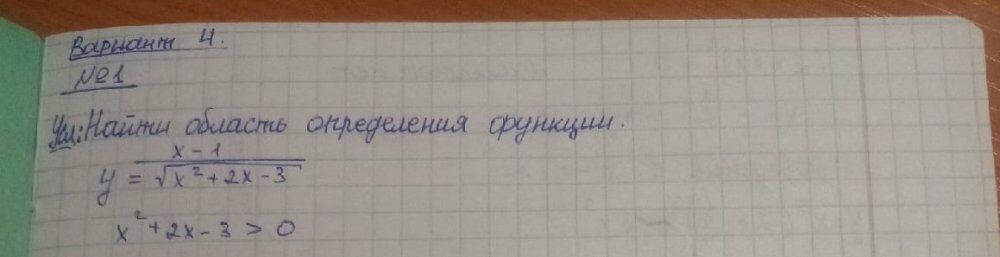 Вариант 4.
№1
Усл: Найти область определения функции.
x - 1
y = √x² + 2x - 3
x² + 2x - 3 > 0